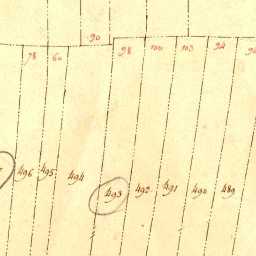 90
78 60 98 100 103 94
496 495 494 493 492 491 490 489